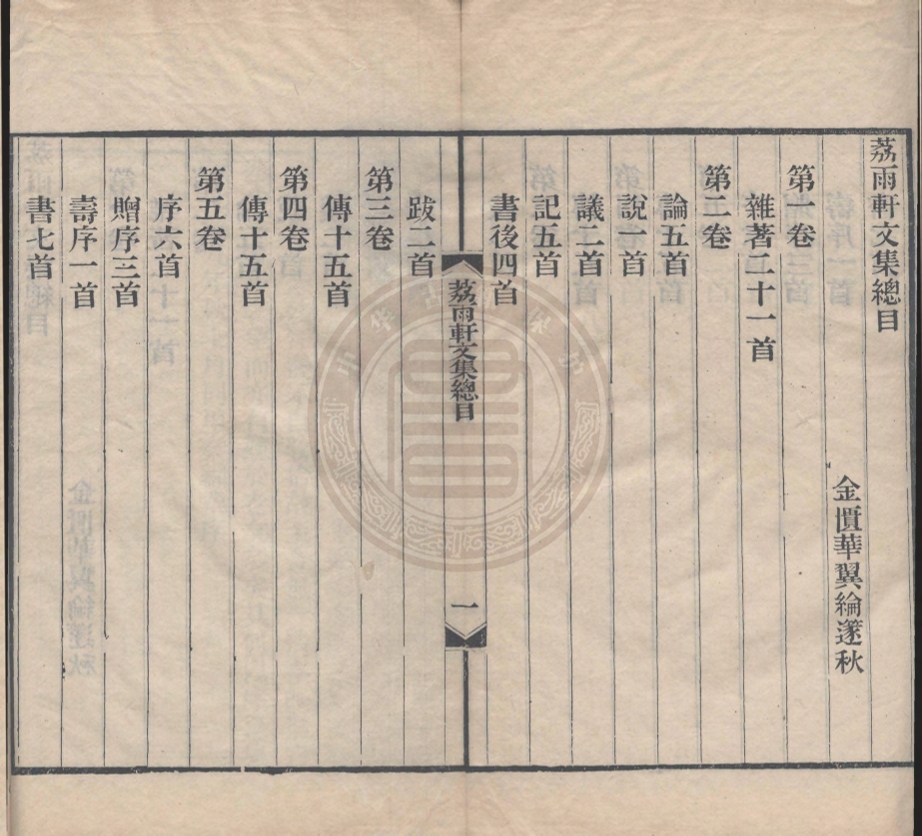 荔雨軒文集總目
金匱華翼綸篴秋
第一卷
雜著二十一首
第二卷
論五首
說一首
議二首
記五首
書後四首
荔雨軒文集總目
一
跋二首
第三卷
傳十五首
第四卷
傳十五首
第五卷
序六首
贈序三首
壽序一首
書七首